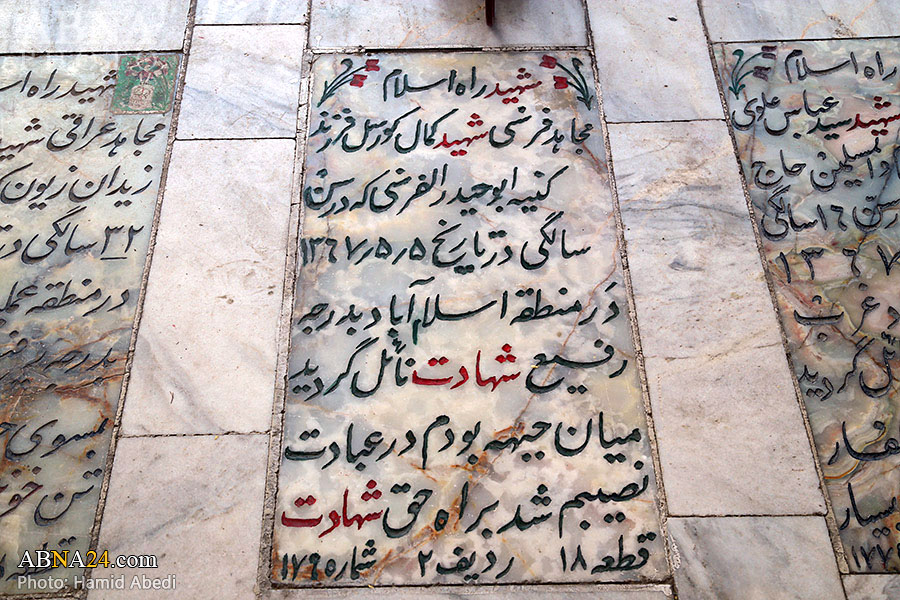 شهید راه اسلام
مجاهد فرنسی شهید کمال کورسل فرزند
کنیه ابوحیدر الفرنسی که در سن
سالگی در تاریخ ۱۳۶۷٫۵٫۵
در منطقه اسلام آباد بدرجه
رفیع شهادت نائل گردید
میان جبهه بودم در عبادت
نصیبم شد براه حق شهادت
قطعه ۱۸ ردیف ۲ شماره ۱۷۹۵
شهید راه اس
مجاهد عراقی شهی
زیدان زبون ک
۳۲ سالگی در
در منطقه عملی
بدرجه رفی
بسوی
تن خو
راه اسلام
شهید سید عباس علوی
والمسلمین حاج
سن ۱۶ سالگی
۱۳۶۷
د غرب
نائل گردید
بسیار
۱۷۷
ABNA24.com
Photo: Hamid Abedi